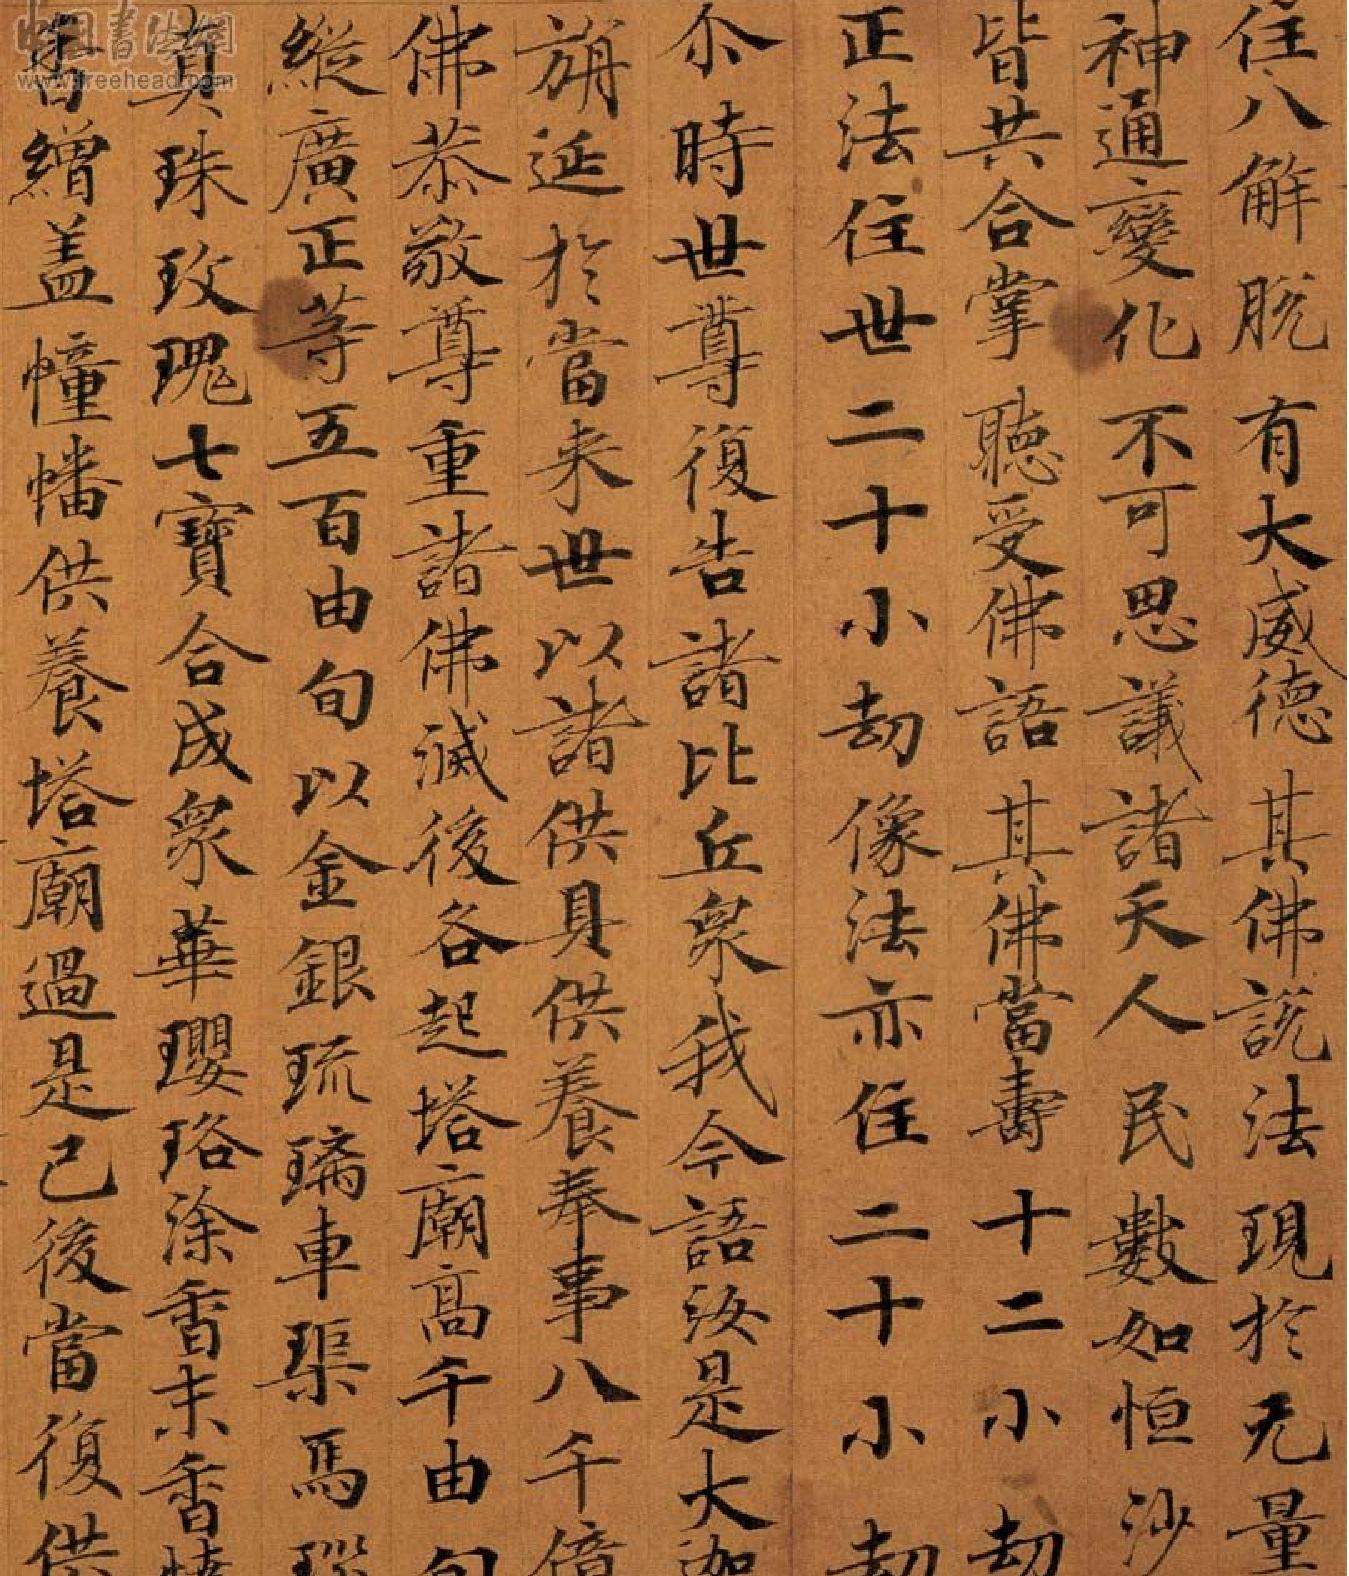 住八解脫有大威德其佛說法現於无量
神通變化不可思議諸天人民數如恒沙
皆共合掌聽受佛語其佛當壽十二小劫
正法住世二十小劫像法亦住二十小劫
尒時世尊復告諸比丘衆我今語汝是大迦
旃延於當来世以諸供具供養奉事八千億
佛恭敬尊重諸佛滅後各起塔廟高千由旬
縱廣正等五百由旬以金銀琉璃車璖馬瑙
真珠玫瑰七寶合成衆華瓔珞涂香末香燒
香繒盖幢幡供養塔廟過是已後當復供
中国書法網
www.freehead.com